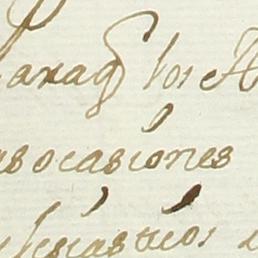 Paraq los A
as ocasiones
clesiasticos